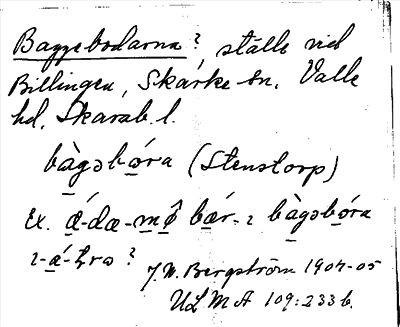 Baggebodarna? ställe vid
Billingen, Skärke sn. Valle
hd, Skarab. l.
bàgǝbɷ́ra (Stenstorp)
Ex. ǽ-dæ-mɷ̂ bær-ɩ bàgǝbɷ́ra
J. N. Bergström 1904-05
ULMA 109:233 b.